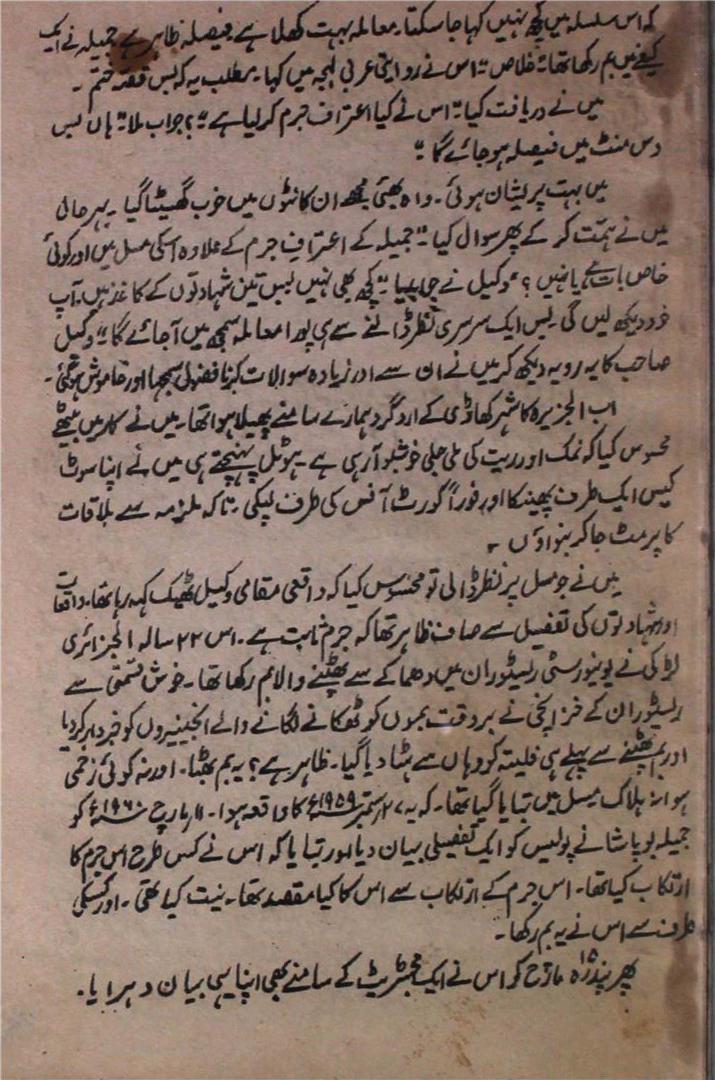 کہ اس سلسلہ میں کچھ نہیں کہا جا سکتا۔ معاملہ بہت کھلا ہے۔ فیصلہ ظاہر ہے جمیلہ نے ایک
کیفے میں بم رکھا تھا۔ خلاص“ اس نے روایتی عربی لہجہ میں کہا۔ مطلب یہ کہ بس قصہ ختم۔
میں نے دریافت کیا ”اس نے کیا اعتراف جرم کر لیا ہے“؟ جواب ملا ”ہاں بس
دس منٹ میں فیصلہ ہو جائے گا“
میں بہت پریشان ہوئی۔ واہ بھئی مجھے ان کانٹوں میں خوب گھسیٹا گیا۔ بہر حال
میں نے ہمت کر کے پھر سوال کیا ”جمیلہ کے اعتراف جرم کے علاوہ اسکی مسل میں اور کوئی
خاص بات ہے یا نہیں؟ “وکیل نے جواب دیا ”کچھ بھی نہیں بس تین شہادتوں کے کاغذ ہیں۔ آپ
خود دیکھ لیں گی۔ بس ایک سرسری نظر ڈالنے سے ہی پورا معاملہ سمجھ میں آجائے گا“ وکیل
صاحب کا یہ رویہ دیکھ کر میں نے ان سے اور زیادہ سوالات کرنا فضول سمجھا اور خاموش ہو گئی۔
اب الجزیرہ کا شہر کھاڑی کے ارد گرد ہمارے سامنے پھیلا ہوا تھا۔ میں نے کار میں بیٹھے
محسوس کیا کہ نمک اور ریت کی ملی جلی خوشبو آ رہی ہے۔ ہوٹل پہنچتے ہی میں نے اپنا سوٹ
کیس ایک طرف پھینکا اور فوراً کورٹ آفس کی طرف لپکی۔ تاکہ ملزمہ سے ملاقات
کا پرمٹ جا کر بنواؤں۔
میں نے جو مسل پر نظر ڈالی تو محسوس کیا کہ واقعی مقامی وکیل ٹھیک کہہ رہا تھا۔ واقعات
اور شہادتوں کی تفصیل سے صاف ظاہر تھا کہ جرم ثابت ہے۔ اس ۲۲ سالہ الجزائری
لڑکی نے یونیورسٹی ریسٹوران میں دھماکے سے پھٹنے والا بم رکھا تھا۔ خوش قسمتی سے
ریسٹوران کے خزانچی نے بر وقت بموں کو ٹھکانے لگانے والے انجینیروں کو خبردار کر دیا
اور بم پھٹنے سے پہلے ہی فلیتہ کو وہاں سے ہٹا دیا گیا۔ ظاہر ہے؟ یہ بم پھٹا۔ اور نہ کوئی زخمی
ہوا نہ ہلاک مسل میں بتایا گیا تھا۔ کہ یہ ۲۷ ستمبر ۱۹۵۹ء کا واقعہ ہوا۔ ۱۱ مارچ ۱۹۶۰ء کو
جمیلہ بوپاشا نے پولیس کو ایک تفصیلی بیان دیا اور بتایا کہ اس نے کس طرح اس جرم کا
ارتکاب کیا تھا۔ اس جرم کے ارتکاب سے اس کا کیا مقصد تھا۔ نیت کیا تھی۔ اور کسکی
طرف سے اس نے یہ بم رکھا۔
پھر پندرہ ۱۵ مارچ کو اس نے ایک مجسٹریٹ کے سامنے بھی اپنا یہی بیان دہرایا۔